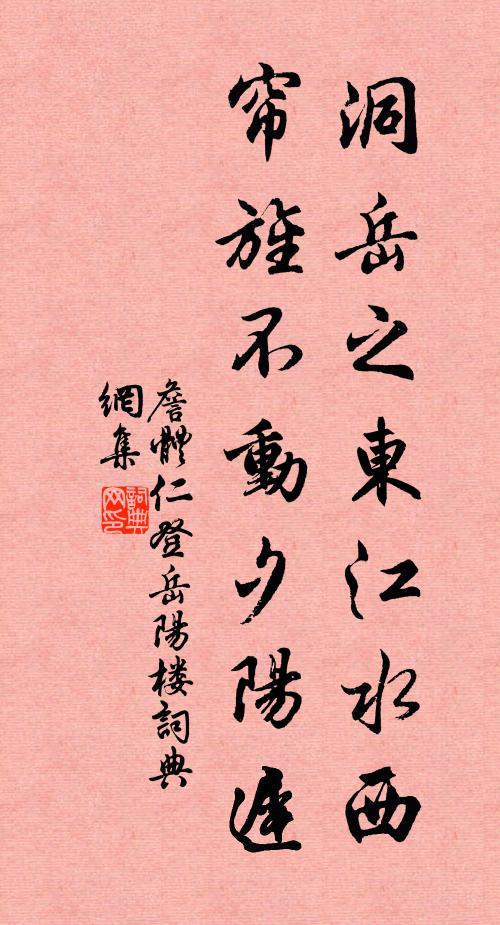 洞岳之東江水西
帘旌不動夕陽遲
詹體仁登岳陽楼詞典
網集
詞典
网印